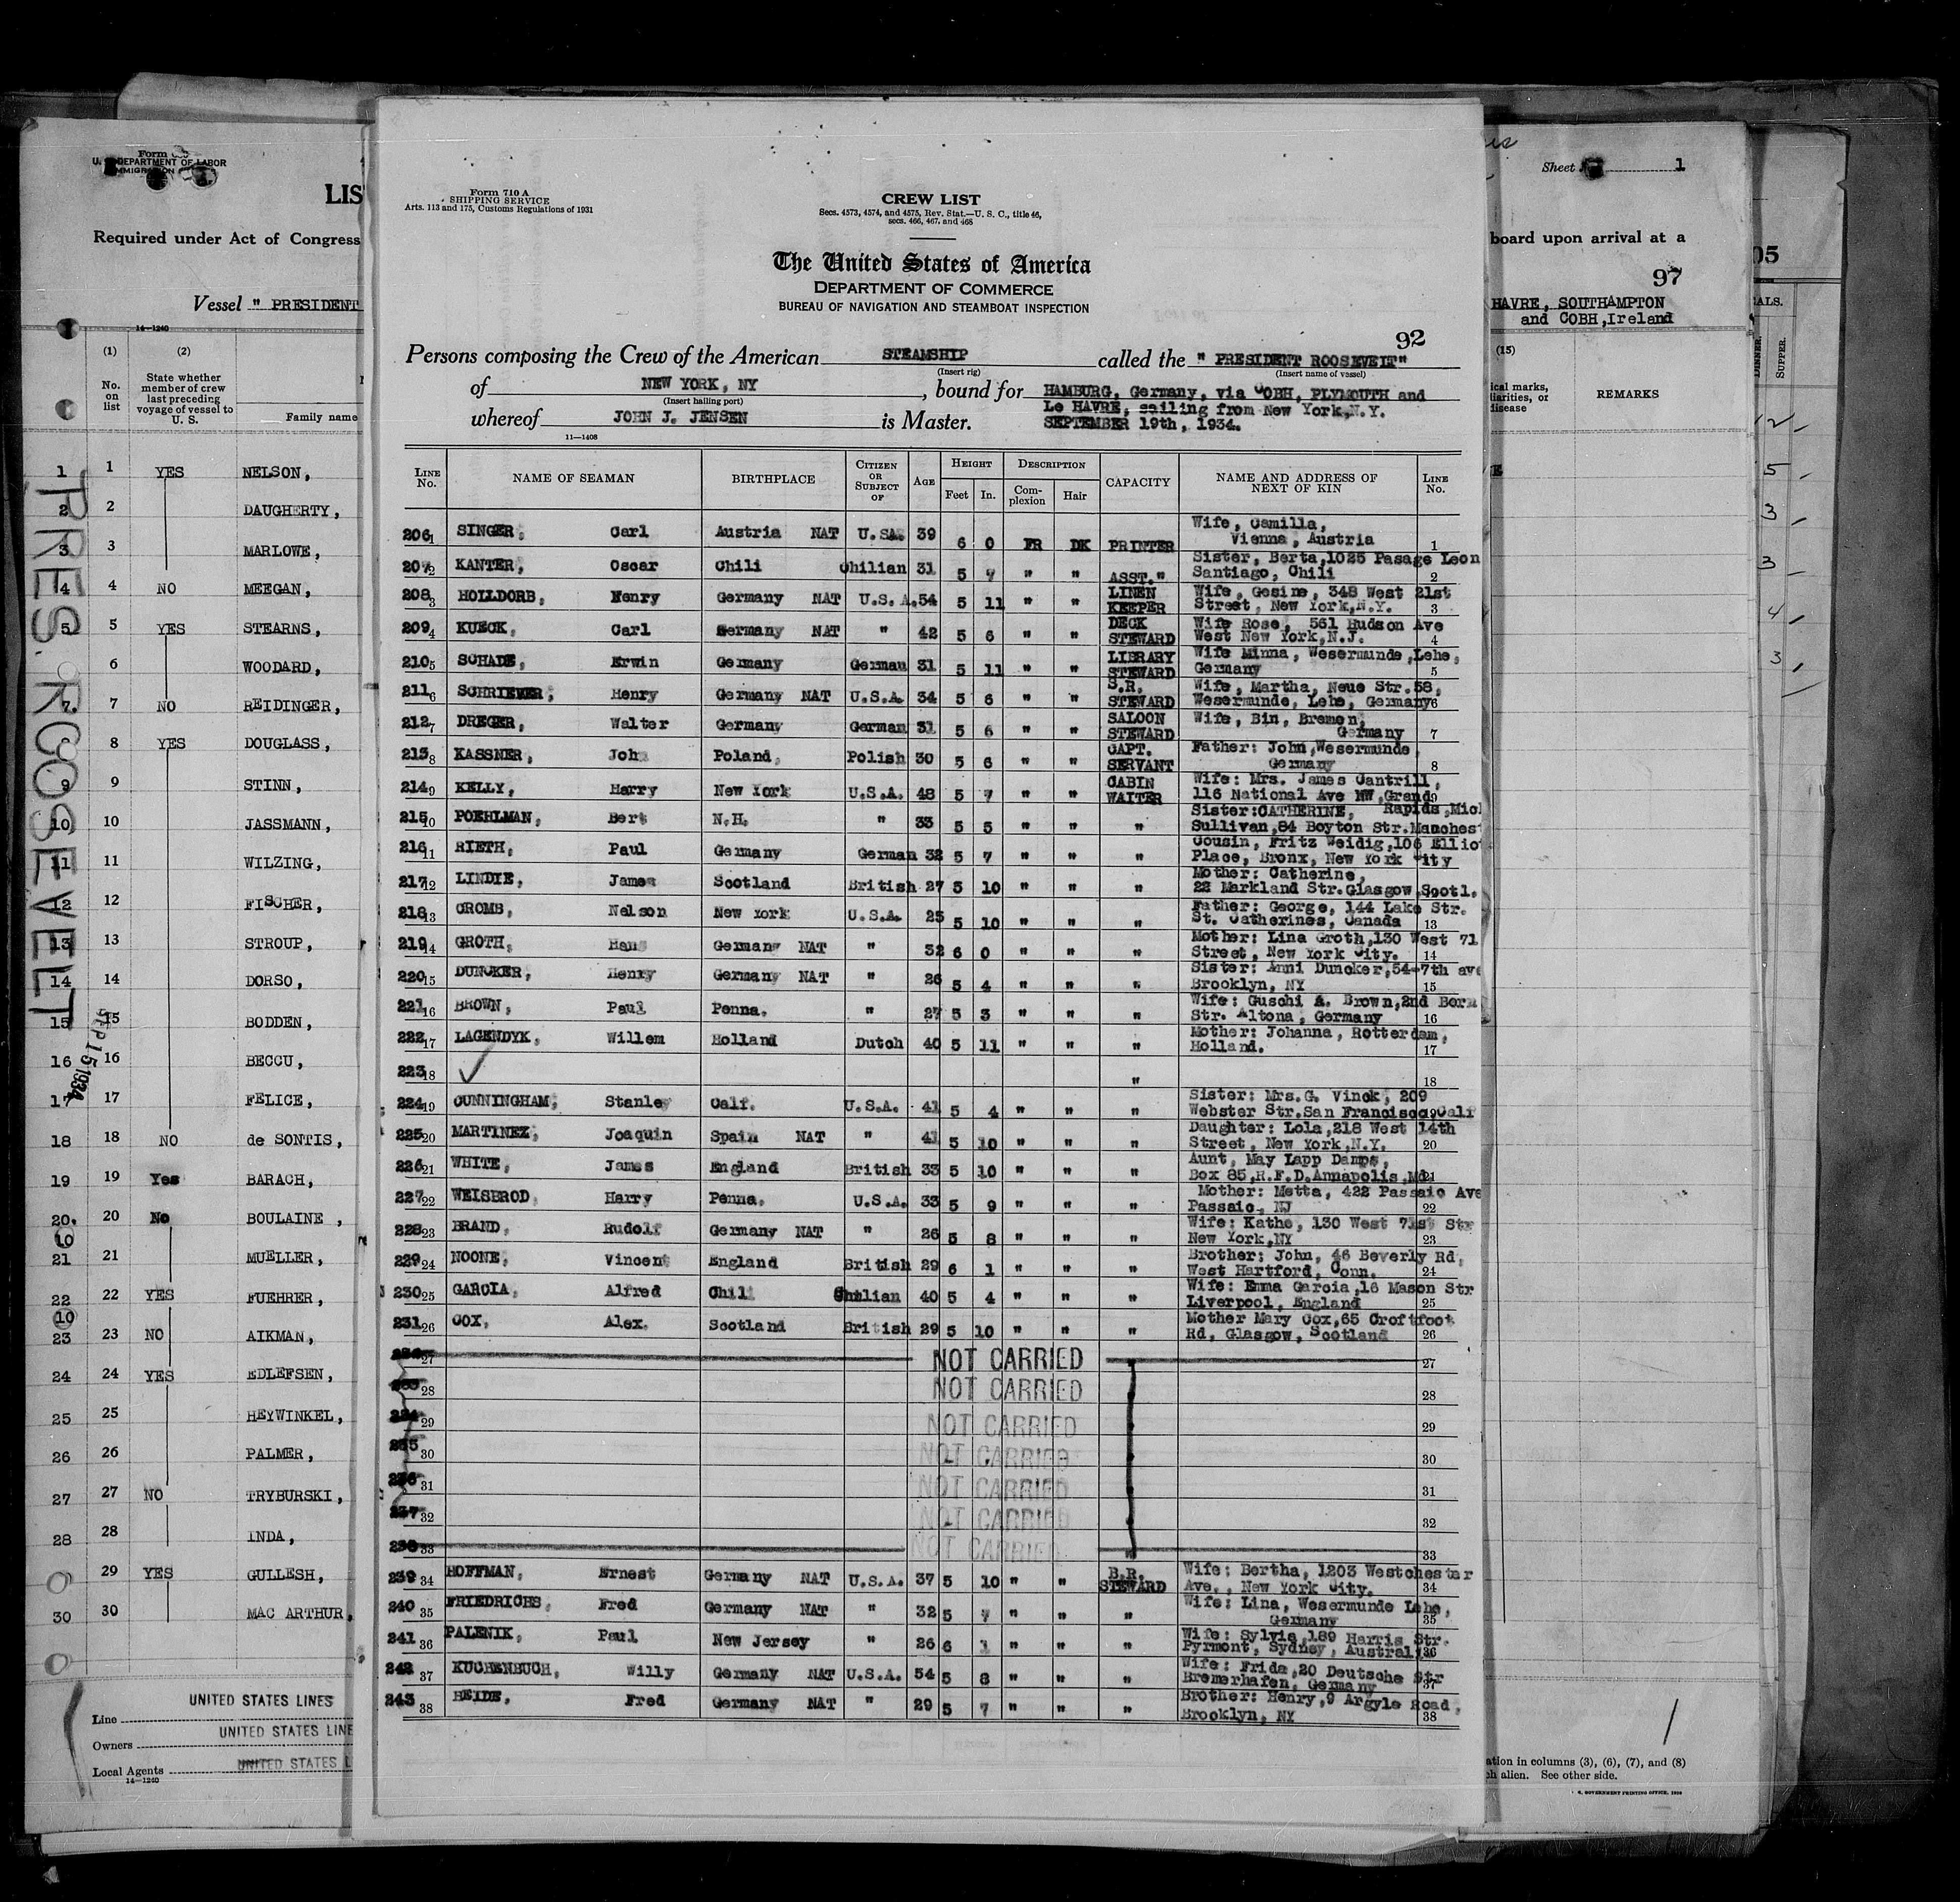 Form
U. S. DEPARTMENT OF LABOR
IMMIGRATION
LIS
Required under Act of Congress
Vessel " PRESIDENT
14—1240
(1) (2)
No. on list
State whether member of crew last preceding voyage of vessel to U. S.
Family name
1 1 YES NELSON,
2 2 DAUGHERTY,
3 3 MARLOWE,
4 4 NO MEEGAN,
5 5 YES STEARNS,
6 WOODARD,
7 7 NO REIDINGER,
8 YES DOUGLASS,
9 9 STINN,
10 10 JASSMANN,
11 11 WILZING,
12 12 FISCHER,
13 13 STROUP,
14 14 DORSO,
15 15 BODDEN,
16 16 BECCU,
17 17 FELICE,
18 18 NO de SONTIS,
19 19 Yes BARACH,
20. 20 No BOULAINE,
10
21 21 MUELLER,
22 22 YES FUEHRER,
10
23 23 NO AIKMAN,
24 24 YES EDLEFSEN,
25 25 HEYWINKEL,
26 26 PALMER,
27 27 NO TRYBURSKI,
28 28 INDA,
29 YES GULLESH,
30 30 MAC ARTHUR,
PRES ROOSEVELT
SEP 15 1934
UNITED STATES LINES
Line
UNITED STATES LINE
Owners
UNITED STATES L
Local Agents
14—1240
Form 710 A
SHIPPING SERVICE
Arts. 113 and 175, Customs Regulations of 1931
CREW LIST
Secs. 4573, 4574, and 4575, Rev. Stat.—U. S. C., title 46,
secs. 466, 467, and 468
The United States of America
DEPARTMENT OF COMMERCE
BUREAU OF NAVIGATION AND STEAMBOAT INSPECTION
92
Persons composing the Crew of the American STEAMSHIP called the " PRESIDENT ROOSEVELT"
(Insert rig) (Insert name of vessel)
of NEW YORK, NY, bound for HAMBURG, Germany, via COBH, PLYMOUTH and
(Insert hailing port)
whereof JOHN J. JENSEN is Master. Le HAVRE, sailing from New York,N.Y.
SEPTEMBER 19th, 1934.
11—1408
LINE No. NAME OF SEAMAN BIRTHPLACE CITIZEN OR SUBJECT OF AGE HEIGHT Feet In. DESCRIPTION Complexion Hair CAPACITY NAME AND ADDRESS OF NEXT OF KIN LINE No.
206 1 SINGER, Carl Austria NAT U.SA. 39 6 0 FR DK PRINTER Wife, Camilla, Vienna, Austria 1
207 2 KANTER, Oscar Chili Chilian 31 5 7 " " ASST." Sister, Berta,1025 Pasage Leon Santiago, Chili 2
208 3 HOLLDORB, Henry Germany NAT U.S.A. 54 5 11 " " LINEN KEEPER Wife, Gesine, 348 West 21st Street, New York,N.Y. 3
209 4 KUECK, Carl Germany NAT " 42 5 6 " " DECK STEWARD Wife Rose, 561 Hudson Ave West New York,N.J. 4
210 5 SCHADE, Erwin Germany German 31 5 11 " " LIBRARY STEWARD Wife Minna, Wesermunde,Lehe, Germany 5
211 6 SCHRIEWER, Henry Germany NAT U.S.A. 34 5 6 " " S.R. STEWARD Wife, Martha, Neue Str.58, Wesermunde, Lehe, Germany 6
212 7 DREGER, Walter Germany German 31 5 6 " " SALOON STEWARD Wife, Bin, Bremen, Germany 7
213 8 KASSNER, Joh Poland, Polish 30 5 6 " " CAPT. SERVANT Father: John,Wesermunde, Germany 8
214 9 KELLY, Harry New York U.S.A. 48 5 7 " " CABIN WAITER Wife: Mrs. James Cantrill, 116 National Ave NW,Grand 9
215 10 POEHLMAN, Bert N.H. " 33 5 5 " " " Sister:CATHERINE, Rapids,Mich Sullivan,84 Boyton Str.Manchest
216 11 RIETH, Paul Germany German 32 5 7 " " " Cousin, Fritz Weidig,106 Elliot Place, Bronx, New York City
217 12 LINDIE, James Scotland British 27 5 10 " " " Mother: Catherine, 22 Markland Str.Glasgow,Scotl.
218 13 CROMB, Nelson New York U.S.A. 25 5 10 " " " Father: George, 144 Lake Str. St. Catherines, Canada 13
219 14 GROTH, Hans Germany NAT " 32 6 0 " " " Mother: Lina Groth,130 West 71 Street, New York City. 14
220 15 DUNCKER, Henry Germany NAT " 26 5 4 " " " Sister: Anni Duncker,54-7th ave Brooklyn, NY 15
221 16 BROWN, Paul Penna. " 27 5 3 " " " Wife: Guschi A. Brown,2nd Born Str. Altona, Germany 16
222 17 LAGENDYK, Willem Holland Dutch 40 5 11 " " " Mother: Johanna, Rotterdam, Holland. 17
223 18 " 18
224 19 CUNNINGHAM, Stanley Calf. U.S.A. 41 5 4 " " " Sister: Mrs.G. Vinck, 209 Webster Str.San Francisco,Calif 19
225 20 MARTINEZ, Joaquin Spain NAT " 41 5 10 " " " Daughter: Lola,218 West 14th Street, New York,N.Y. 20
226 21 WHITE, James England British 33 5 10 " " " Aunt, May Lapp Damps, Box 85,R.F.D.Annapolis,Md. 21
227 22 WEISBROD, Harry Penna. U.S.A. 33 5 9 " " " Mother: Metta, 422 Passaic Ave Passaic, NJ 22
228 23 BRAND, Rudolf Germany NAT " 26 5 8 " " " Wife: Kathe, 130 West 71st Str New York,NY 23
229 24 NOONE, Vincent England British 29 6 1 " " " Brother: John, 46 Beverly Rd, West Hartford, Conn. 24
230 25 GARCIA, Alfred Chili Chilian 40 5 4 " " " Wife: Emma Garcia,16 Mason Str Liverpool, England 25
231 26 COX, Alex. Scotland British 29 5 10 " " " Mother Mary Cox,65 Croftfoot Rd, Glasgow, Scotland 26
27 NOT CARRIED 27
28 NOT CARRIED 28
234 29 NOT CARRIED 29
235 30 NOT CARRIED 30
236 31 NOT CARRIED 31
237 32 NOT CARRIED 32
238 33 NOT CARRIED " 33
239 34 HOFFMAN, Ernest Germany NAT U.S.A. 37 5 10 " " B.R. STEWARD Wife: Bertha, 1203 Westchester Ave., New York City. 34
240 35 FRIEDRICHS, Fred Germany NAT " 32 5 7 " " " Wife: Lina, Wesermunde Lehe, Germany 35
241 36 PALENIK, Paul New Jersey " 26 6 1 " " " Wife: Sylvia,189 Harris Str. Pyrmont, Sydney, Australi 36
242 37 KUCHENBUCH, Willy Germany NAT U.S.A. 54 5 8 " " " Wife: Frida,20 Deutsche Str Bremerhafen, Germany 37
243 38 HEIDE, Fred Germany NAT " 29 5 7 " " " Brother: Henry,9 Argyle Road, Brooklyn, NY 38
Sheet 1
board upon arrival at a
97
HAVRE, SOUTHAMPTON
and COBH,Ireland
(15)
ical marks,
liarities, or
disease
REMARKS
ation in columns (3), (6), (7), and (8)
ch alien. See other side.
U. S. GOVERNMENT PRINTING OFFICE, 1930
05
ALS.
DINNER.
SUPPER.
12
5
3
3
4
3